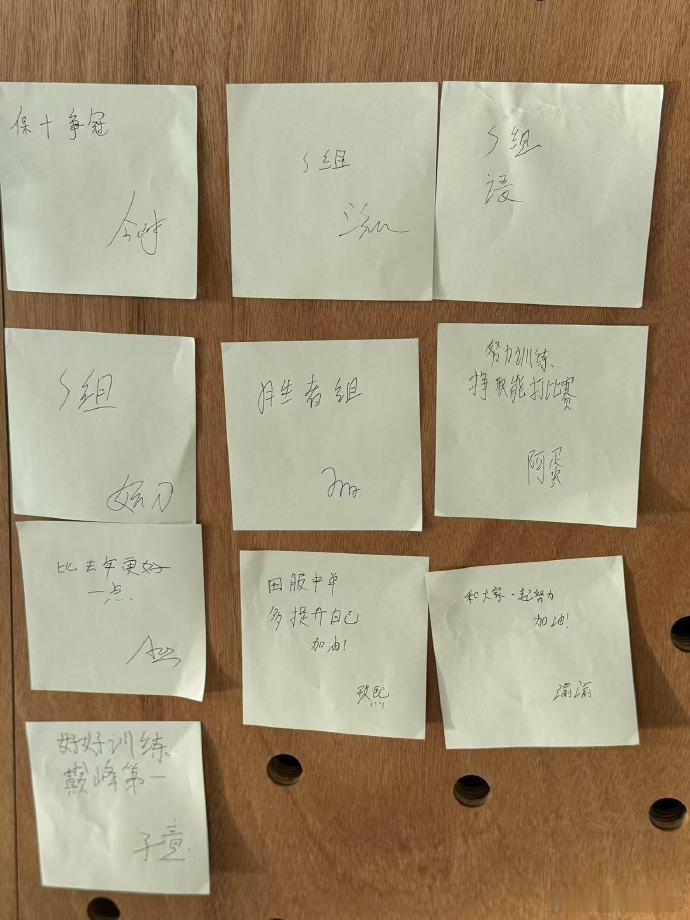 保十争冠
S组
S组
语
S组
胜者组
努力训练
挣取能打比赛
阿蛋
比去年更好
一点
国服中单
多提升自己
加油!
玖熙
和大家一起努力
加油!
渝渝
好好训练
巅峰第一
子意